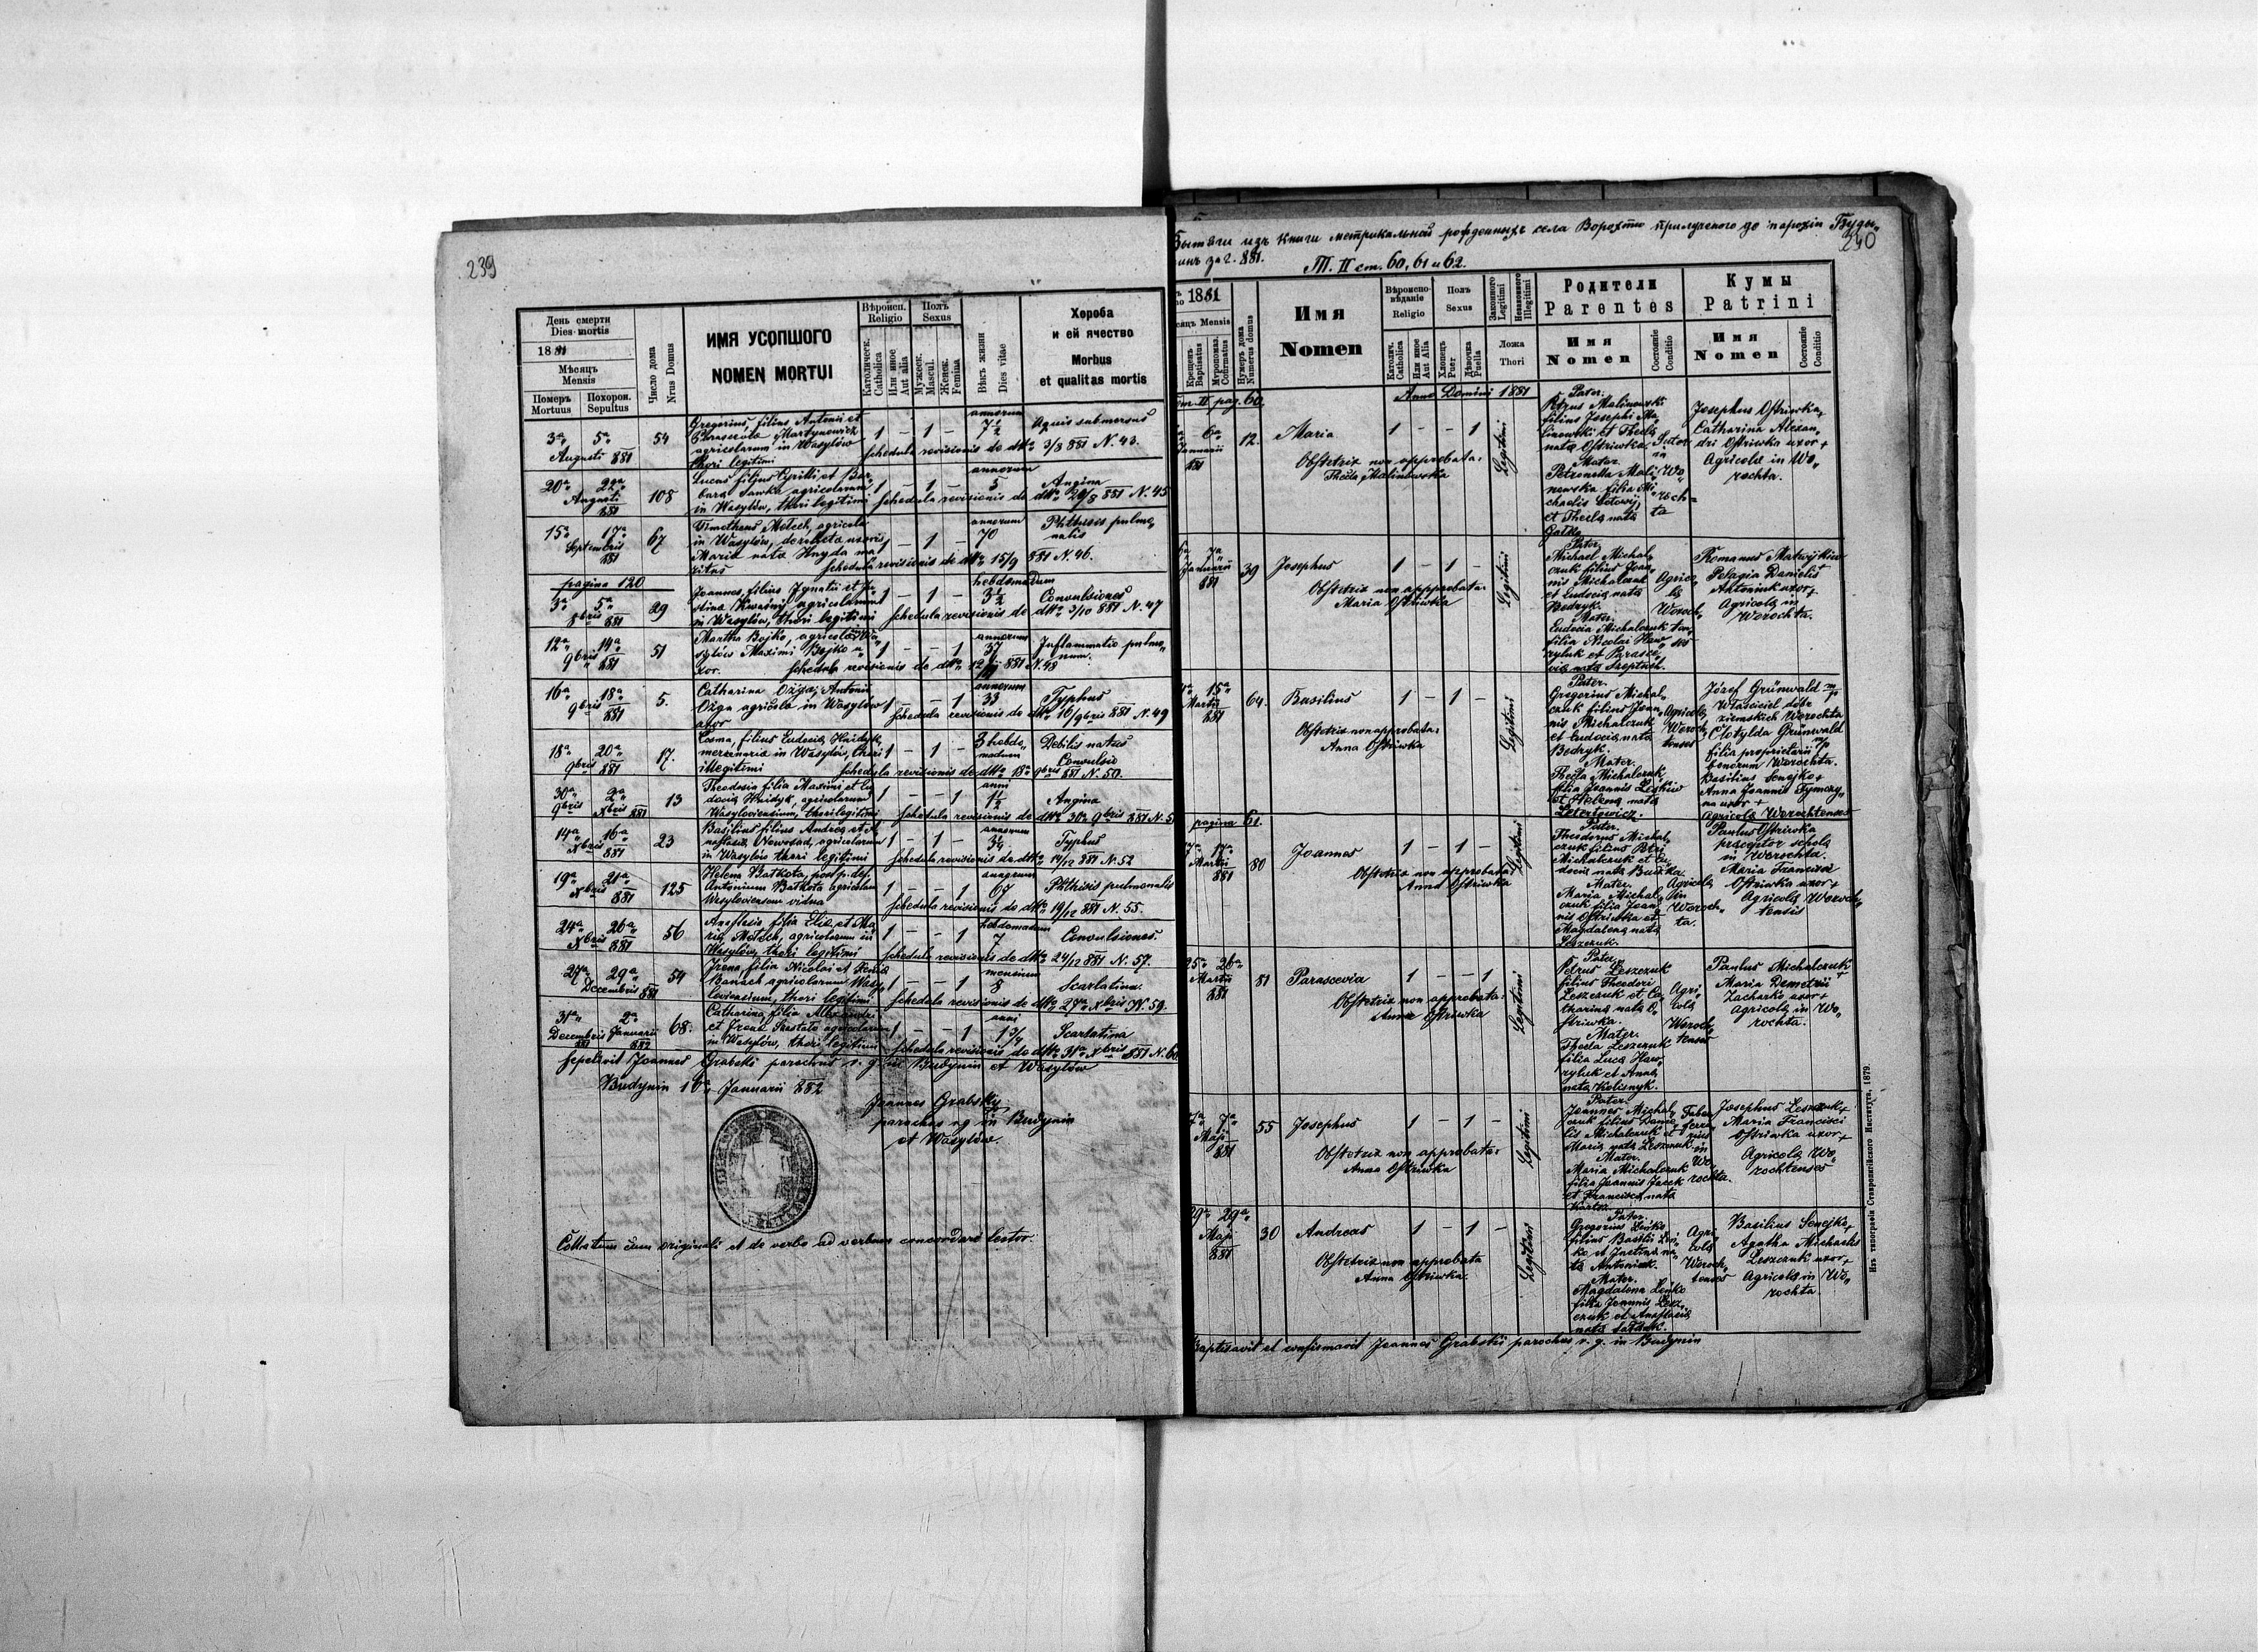 239
День смерти
Dies mortis
1881
Мѣсяцъ
Mensis
Померъ
Mortuus
Похорон.
Sepultus
Число дома
Nrus Domus
ИМЯ УСОПШОГО
NOMEN MORTUI
Вѣроисп.
Religio
Католическ.
Catholica
Или иное
Aut alia
Полъ
Sexus
Мужеск.
Mascul.
Женск.
Femina
Вѣкъ жизни
Dies vitae
Хороба
и ей ячество
Morbus
et qualitas mortis
3a 5a
Augusti 881
54
Gregorius, filius Antonii et
Parascevia Martynowicz
agricolarum in Wasylów
thori legitimi
1 – 1 –
annorum
7 1/2
Aquis submersus
schedula revisionis de dtto 3/8 881 N. 43.
20a 22a
Augusti
881
108
Lucas filius Cyrilli et Bar„
bara Sawka agricolarum
in Wasylów, thori legitimi
1 – 1 –
annorum
5
Angina
schedula revisionis de dtto 20/8 881 N. 45
15a 17a
Septembris
881
67
Timotheus Metech, agricola
in Wasylów, derelicta uxoris
Maria nata Hnyda ma„
ritus
1 – 1 –
annorum
70
Phthisis pulmo„
nalis
schedula revisionis de dtto 15/9 881 N. 46.
pagina 120
3a 5a
8bris 881
29
Joannes, filius Ignatii et Ju„
stina Kwasnij, agricolarum
in Wasylów, thori legitimi
1 – 1 –
hebdomadum
3 1/2
Convulsiones
schedula revisionis de dtto 3/10 881 N. 47
12a 14a
9bris 881
51
Martha Bojko, agricola Wa„
sylów Maximi Bojko u„
xor.
1 – – 1
annorum
37
Inflammatio pulmo„
num.
schedula revisionis de dtto 12/11 881 N. 48
16a 18a
9bris 881
5.
Catharina Ożga, Antonii
Ożga agricola in Wasylów
uxor
1 – – 1
annorum
33
Typhus
schedula revisionis de dtto 16/9bris 881 N. 49
18a 20a
9bris 881
17.
Cosma, filius Eudocia Hnidyk,
mercenaria in Wasylów, thori
illegitimi
1 – 1 –
3 hebdo„
madum
Debilis natus
Convulsio
schedula revisionis de dtto 18a 9bris 881 N. 50.
30a 2a
9bris Xbris 881
13
Theodosia filia Maximi et Eu„
docia Hnidyk, agricolarum
Wasyloviensium, thori legitimi
1 – – 1
anni
1 1/2
Angina
schedula revisionis de dtto 30a 9bris 881 N. 5
14a 16a
Xbris 881
23
Basilius filius Andrea et A„
nastasia Nowosad, agricolarum
in Wasylów thori legitimi
1 – 1 –
annorum
3 1/4
Typhus
schedula revisionis de dtto 14/12 881 N. 52
19a 21a
Xbris 881
125
Helena Batkota, post p. def.
Antonium Batkota agricolam
Wasyloviensem vidua
1 – – 1
annorum
67
Phthisis pulmonalis
schedula revisionis de dtto 19/12 881 N. 55.
24a 26a
Xbris 881
56
Anastasia filia Elia et Ma„
ria Metech, agricolarum in
Wasylów, thori legitimi
1 – – 1
hebdomadum
7
Convulsiones.
schedula revisionis de dtto 24/12 881 N. 57.
27a 29a
Decembris 881
54
Irena filia Nicolai et Xenia
Banach agricolarum Wasy„
loviensium, thori legitimi
1 – – 1
mensium
8
Scarlatina.
schedula revisionis de dtto 27a Xbris N. 59.
31a 2a
Decembris Januarii
881 882
68.
Catharina filia Alexandri
et Irena agricolarum
in Wasylów, thori legitimi
1 – – 1
anni
1 3/4
Scarlatina
schedula revisionis de dtto 31a Xbris 881 N. 60
Sepelivit Joannes Grabski parochus r. g. in Budynin et Wasylów
Budynin 10a Januarii 882
Joannes Grabsky
parochus r. g. in Budynin
et Wasylów.
Collatum cum originali et de verbo ad verbum concordare testor.
240
Вытяги изъ книги метрикальной рожденныхъ села Ворохта прилученого до парохіи Буды„
инъ за г. 881.
Т. II ст. 60, 61 и 62.
1881
Mensis
Крещенъ
Baptisatus
Мѵропомаз.
Cofirmatus
Нумеръ дома
Numerus domus
Имя
Nomen
Вѣроиспо-
вѣданіе
Religio
Католич.
Catholica
Или иное
Aut Alia
Полъ
Sexus
Хлопець
Puer
Дѣвочка
Puella
Законного
Legitimi
Незаконного
Illegitimi
Ложа
Thori
Родители
Parentes
Имя
Nomen
Состояніе
Conditio
Кумы
Patrini
Имя
Nomen
Состояніе
Conditio
Tom II pag. 60.
Anno Domini 1881
6a
Januarii
881
12.
Maria
1 – – 1
Obstetrix non approbata:
Thecla Malinowska
Legitimi
Pater.
Petrus Malinowski
filius Josephi Ma„
linowski et Thecla
nata Ostriwka
Mater
Petronella Mali„
nowska filia Mi„
chaelis
et Thecla nata
Gałka
Sutor
in
Wo„
roch„
ta
Josephus Ostriwka+
Catharina Alexan„
dri Ostriwka uxor +
Agricola in Wo„
rochta.
7a
Januarii
881
39
Josephus
1 – 1 –
Obstetrix non approbata:
Maria Ostriwka
Legitimi
Pater
Michael Michal„
czuk filius Joan„
nis Michalczuk
et Eudocia nata
Bedryk.
Mater.
Eudocia Michalczuk
filia Nicolai Haw„
ryluk et Parasce„
via nata Szeptuch.
Agrico„
la
Woroch„
ten„
ses
Romanus Matwijkiw
Pelagia Danielis
Antoniuk uxor+
Agricola in
Worochta.
15a
Martii
881
64.
Basilius
1 – 1 –
Obstetrix non approbata:
Anna Ostriwka
Legitimi
Pater.
Gregorius Michal„
czuk filius Joan„
nis Michalczuk
et Eudocia nata
Bedryk.
Mater.
Thecla Michalczuk
filia Joannis Leskiw
et Helena nata
Agricola
Woroch„
tenses
Józef Grünwald m/p
Właściciel dóbr
ziemskich Worochta
Clotylda Grünwald
filia proprietarii m/p
bonorum Worochta.
Basilius Senejko+
Anna Joannis Symczy„
na uxor +
agricola Worochtenses
pagina 61.
17a 17a
Martii
881
80
Joannes
1 – 1 –
Obstetrix non approbata:
Anna Ostriwka
Legitimi
Pater.
Theodorus Michal„
czuk filius Petri
Michalczuk et Eu„
docia nata
Mater.
Maria Michal„
czuk filia Joan„
nis Ostriwka et
Magdalena nata
Leszczuk.
Agricola
in
Woroch„
ta.
Paulus Ostriwka
praeceptor schola
in Worochta.
Maria Francisci
Ostriwka uxor+
Agricola Woroch„
tensis
25a 26a
Martii
881
81
Parascevia
1 – – 1
Obstetrix non approbata:
Anna Ostriwka
Legitimi
Pater
Petrus Leszczuk
filius Theodori
Leszczuk et Ca„
tharina nata O„
striwka.
Mater.
Thecla Leszczuk
filia Luca Haw„
ryluk et Anna
nata Kolesnyk.
Agri„
cola
Woroch„
tenses
Paulus Michalczuk
Maria Demetrii
Zacharko uxor+
Agricola in Wo„
rochta.
7a 7a
Maji
881
55
Josephus
1 – 1 –
Obstetrix non approbata:
Anna Ostriwka
Legitimi
Pater.
Joannes Michal„
czuk filius Danie„
lis Michalczuk et
Maria nata Leszczuk
Mater.
Maria Michalczuk
filia Joannis Jacek
et Francisca nata
Faber
ferra„
rius
in
Wo„
rochta.
Josephus Leszczuk+
Maria Francisci
Ostriwka uxor+
Agricola Wo„
rochtenses
29a 29a
Maji
881
30
Andreas
1 – 1 –
Obstetrix non approbata
Anna Ostriwka.
Legitimi
Pater.
Gregorius Leńko
filius Basilii Leń„
ko et Justina na„
ta Antoniuk.
Mater.
Magdalena Leńko
filia Joannis Lesz„
czuk et Anastasia
nata
Agri„
cola
Woroch„
tenses
Basilius Senejko+
Agatha Michaelis
Leszczuk uxor+
Agricola in Wo„
rochta.
Baptisavit et confirmavit Joannes Grabskii parochus r. g. in Budynin
Изъ типографіи Ставропигійского Института, 1879.